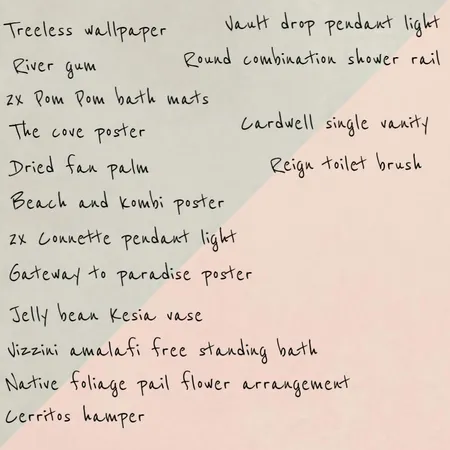 Treeless wallpaper
River gum
2x Pom Pom bath mats
The cove poster
Dried fan palm
Beach and Kombi poster
2x Connette pendant light
Gateway to paradise poster
Jelly bean Kesia vase
Vizzini amalafi free standing bath
Native foliage pail flower arrangement
Cerritos hamper
Vault drop pendant light
Round combination shower rail
Cardwell single vanity
Reign toilet brush